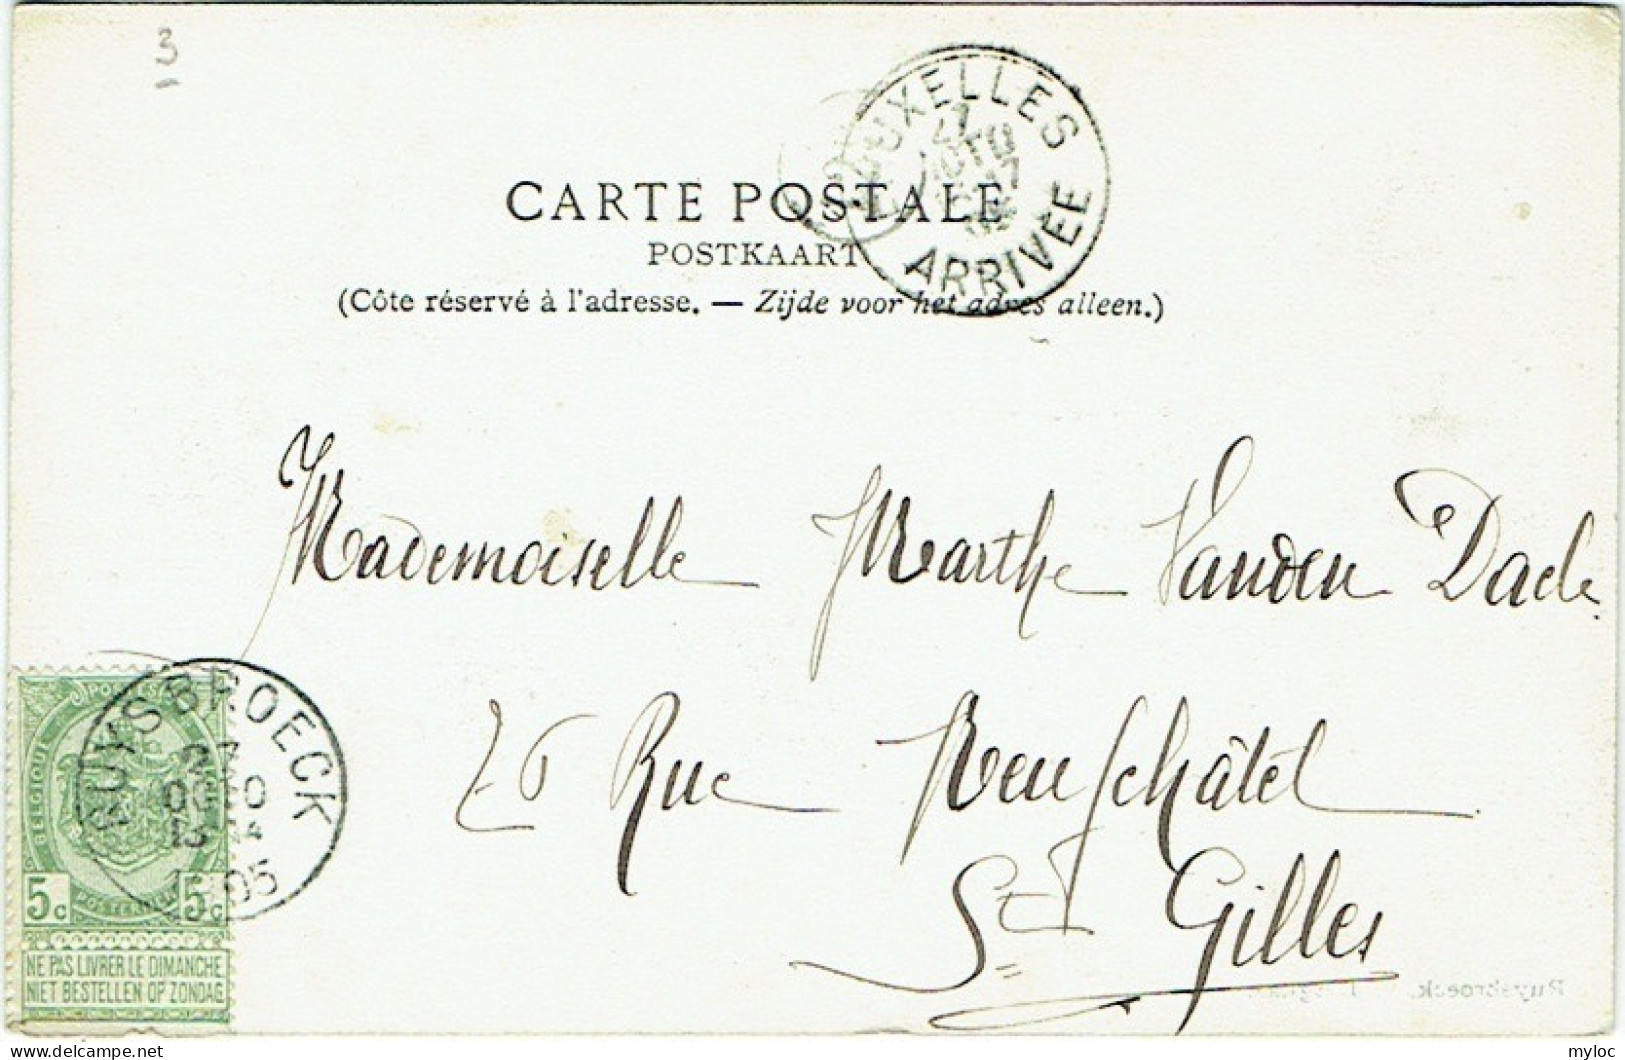 3
BRUXELLES
ARRIVÉE
CARTE POSTALE
POSTKAART
(Côte réservé à l'adresse. — Zijde voor het adres alleen.)
Mademoiselle Marthe Vanden Daele
26 Rue Neufchâtel
St Gilles
RUYSBROECK
1905
BELGIQUE
POSTERIJEN
5c 5c
NE PAS LIVRER LE DIMANCHE
NIET BESTELLEN OP ZONDAG
Ruysbroeck.
myloc